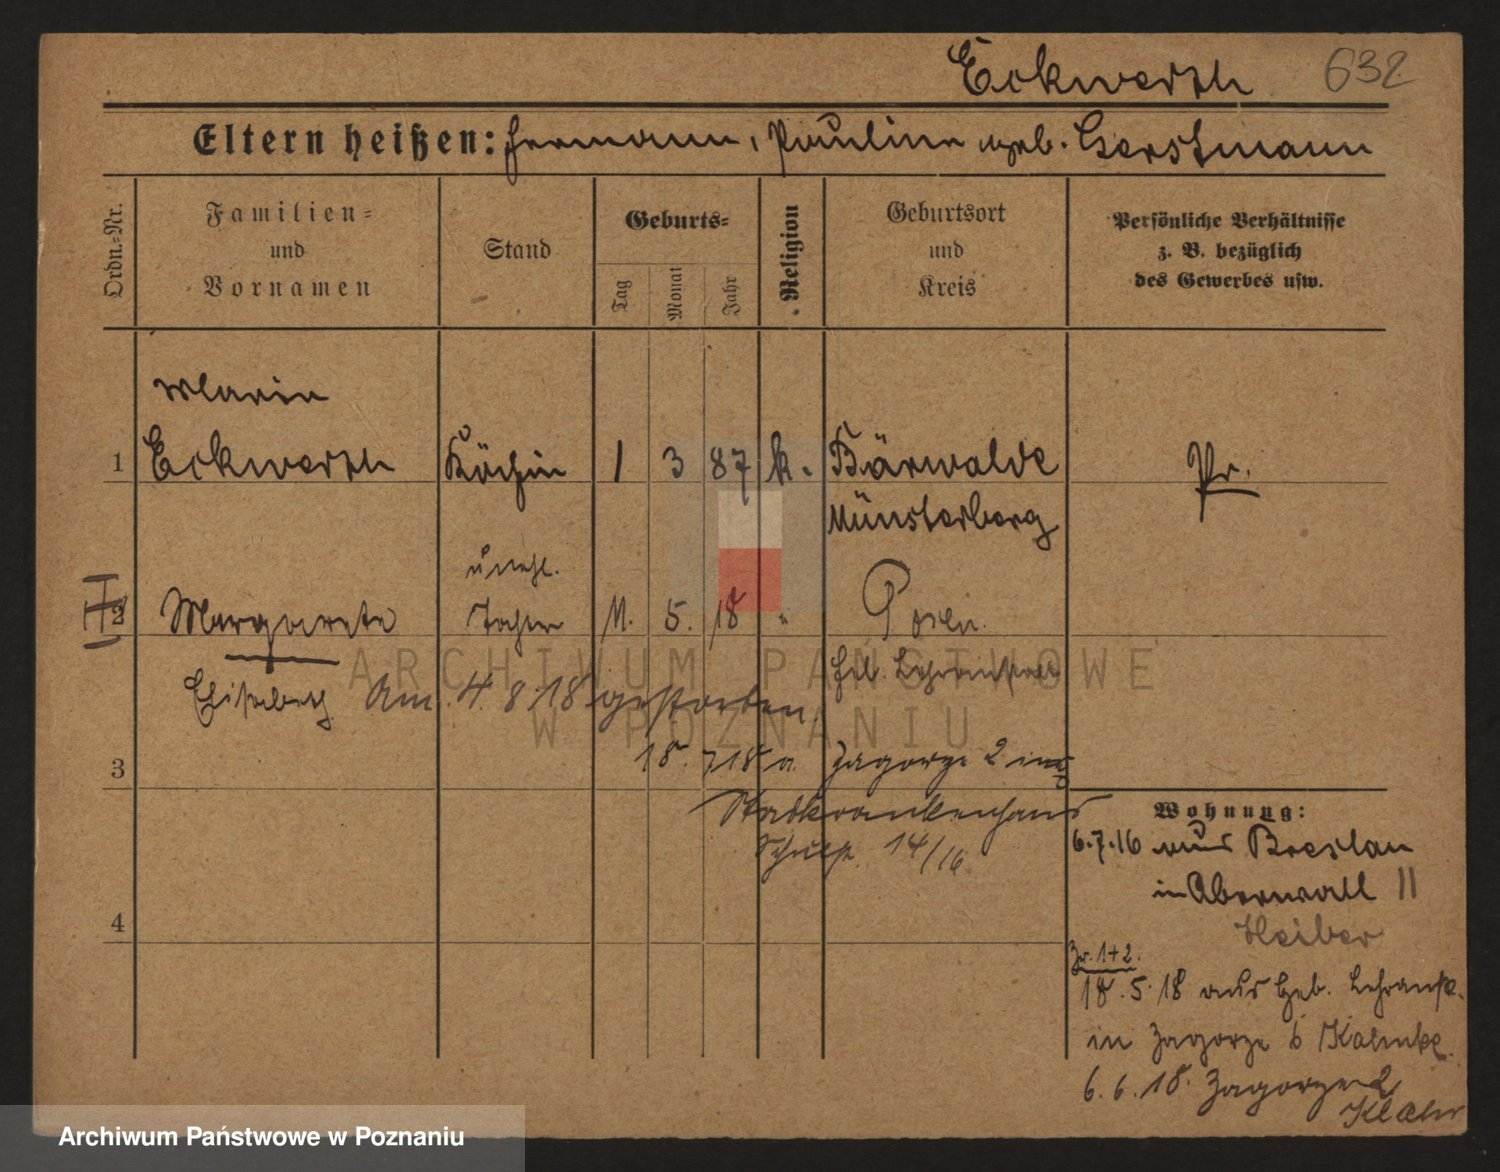 Eckwerth 632
Eltern heißen: Hermann, Pauline geb. Gerstmann
Ordn.=Nr.
Familien=
und
Vornamen
Stand
Geburts=
Tag
Monat
Jahr
Religion
Geburtsort
und
Kreis
Persönliche Verhältnisse
z. B. bezüglich
des Gewerbes usw.
Marie
1 Eckwerth Köchin 1 3 87 k. Bärwalde Pr.
Münsterberg
unehl.
2 Margarete Tochter 11. 5. 18 " Posen
Elisabeth Am 4. 8. 18 gestorben
18. 7 18 a. Zagorze 2 ins
3
Stadtkrankenhaus
Schulstr. 14/16
Wohnung:
6.7.16 aus Breslau
in Obernwall 11
Heiber
4
Zu. 1+2.
18. 5. 18 aus Geb. Lehranst.
in Zagorze 6
6. 6. 18. Zagorze 2
ARCHIWUM PAŃSTWOWE
W POZNANIU
Archiwum Państwowe w Poznaniu